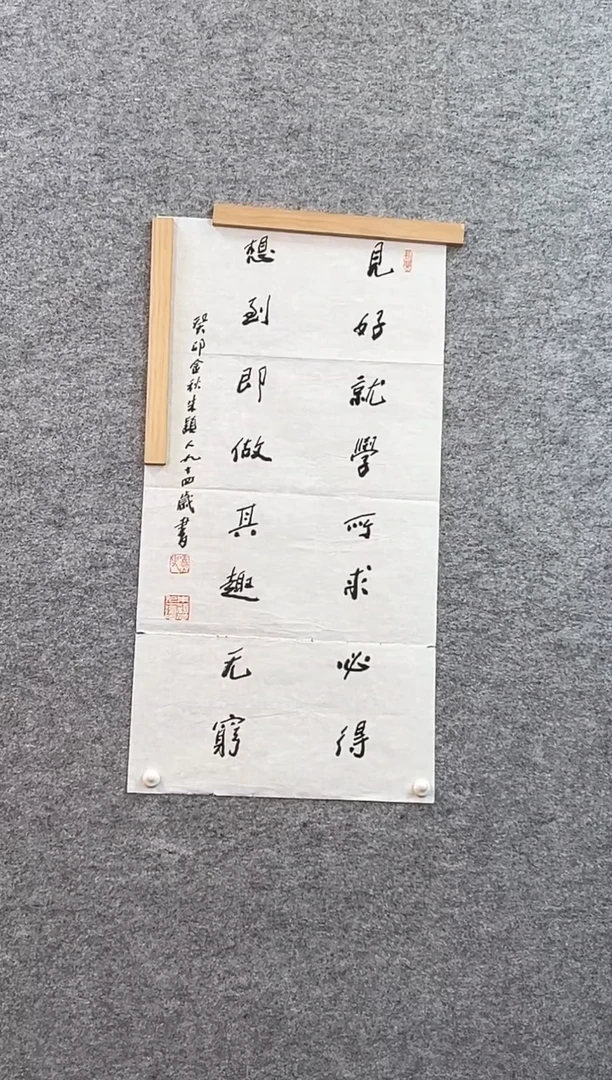 見好就學所求必得
想到即做其趣无窮
癸卯金秋朱穎人九十四歲書